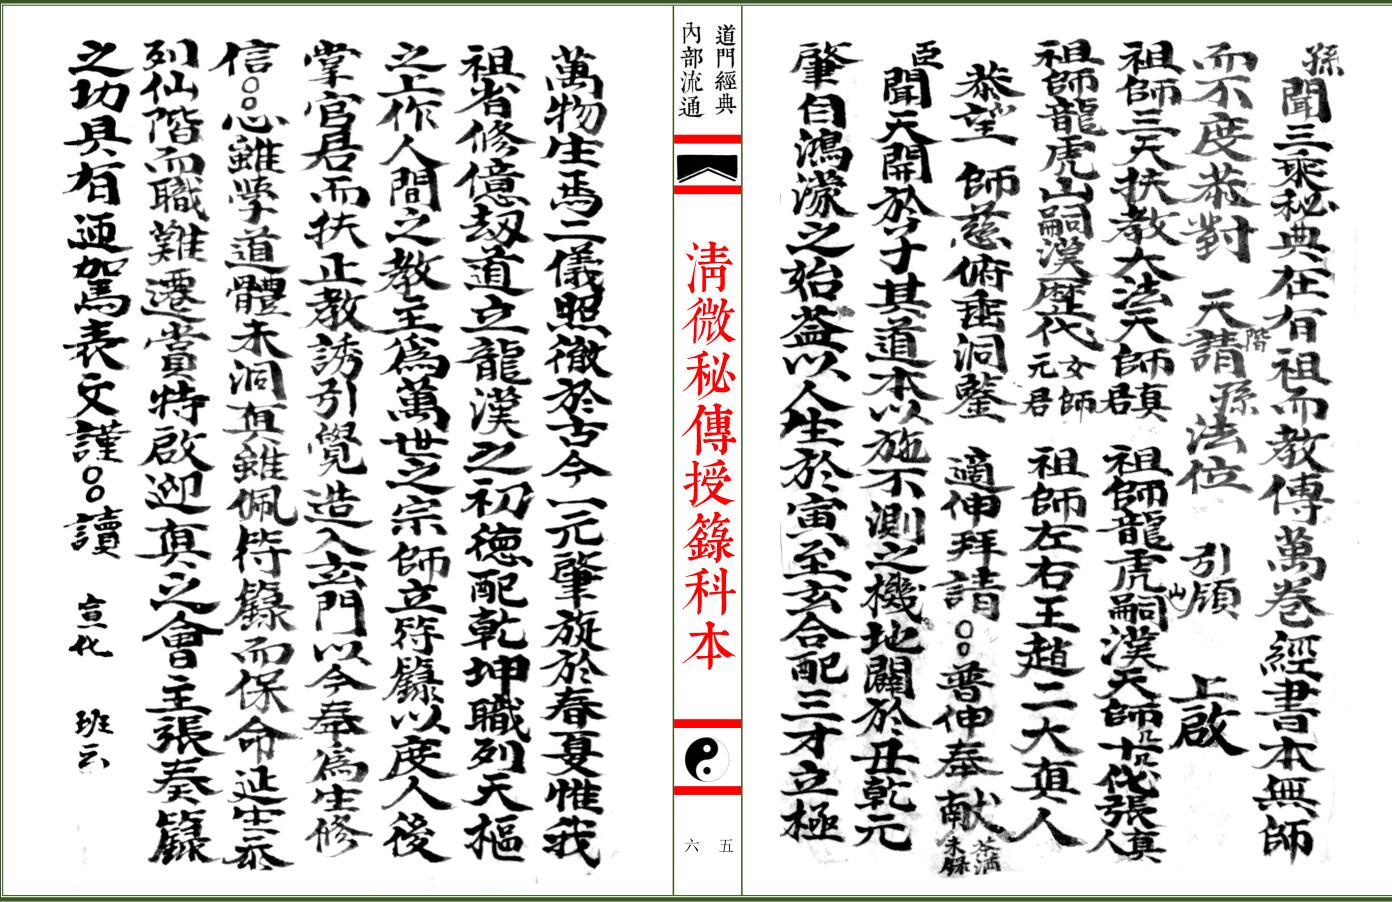 孫
聞三乘秘典在有祖而教傳萬卷經書本無師
而不度恭對 天請孫法位 引領 上啟
階
山
祖師三天扶教大法天師真君 祖師龍虎嗣漢天師几十几代張真人
祖師龍虎山嗣漢歷代女師元君 祖師左右王趙二大真人
恭望 師慈俯垂洞鑒 適伸拜請○○普伸奉献
茶酒未錄
臣
聞天開於子其道本以施不測之機地闢於丑乾元
肇自鴻濛之始益以人生於寅至玄合配三才立極
道門經典
內部流通
清微秘傳授籙科本
五
六
萬物生焉二儀照徹於古今一元肇旋於春夏惟我
祖省修億劫道立龍漢之初德配乾坤職列天樞
之上作人間之教主為萬世之宗師立符籙以度人後
掌官君而扶正教誘引覺造入玄門以今奉為生修
信○○忝雖學道體未洞真雖佩符籙而保命延生忝
列仙階而職難遷當特啟迎真之會主張奏籙
之功具有迎駕表文謹○○讀 宣化 班云